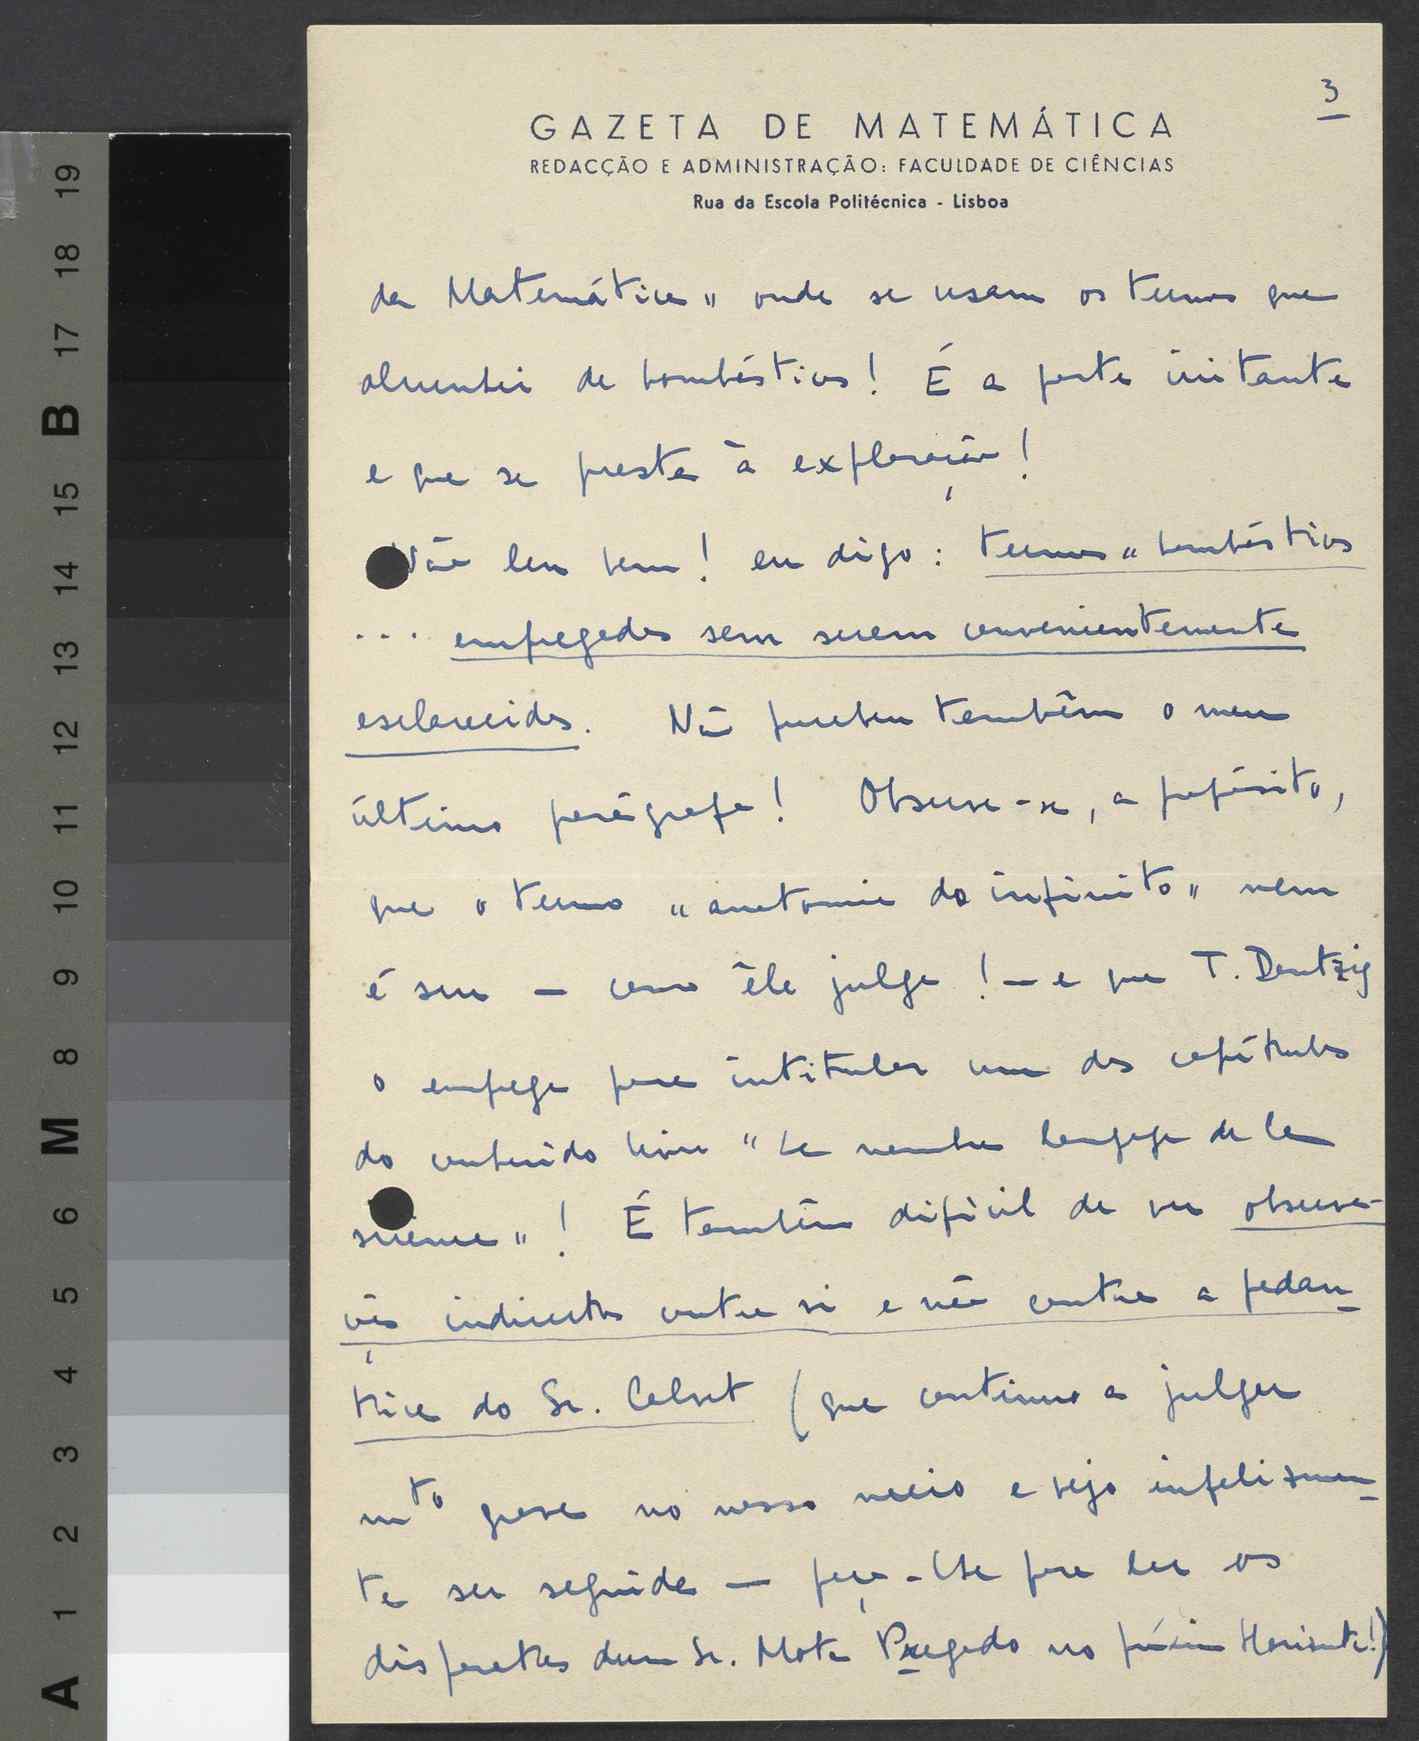 3
GAZETA DE MATEMÁTICA
REDACÇÃO E ADMINISTRAÇÃO: FACULDADE DE CIÊNCIAS
Rua da Escola Politécnica - Lisboa
da Matemática" onde se usam os termos que
alcunhei de bombásticos! É a parte irritante
e que se presta à exploração!
Não leu bem! eu digo: termos "bombásticos
... empregados sem serem convenientemente
esclarecidos. Não percebeu também o meu
último parágrafo! Observe-se, a propósito,
que o termo "anatomia do infinito" nem
é seu — como êle julga! — e que T. Dantzig
o emprega para intitular um dos capítulos
do conhecido livro "Le nombre langage de la
science"! É também difícil de ver observa-
ções indirectas contra si e não contra a pedan-
tice do Sr. Colnet (que continuo a julgar
mto grave no nosso meio e vejo infelizmen-
te ser seguida — peço-lhe para ler os
disparates dum Sr. Mota Pregado no próximo Horizonte!)
19
18
17
B
15
14
13
12
11
10
9
8
M
6
5
4
3
2
1
A